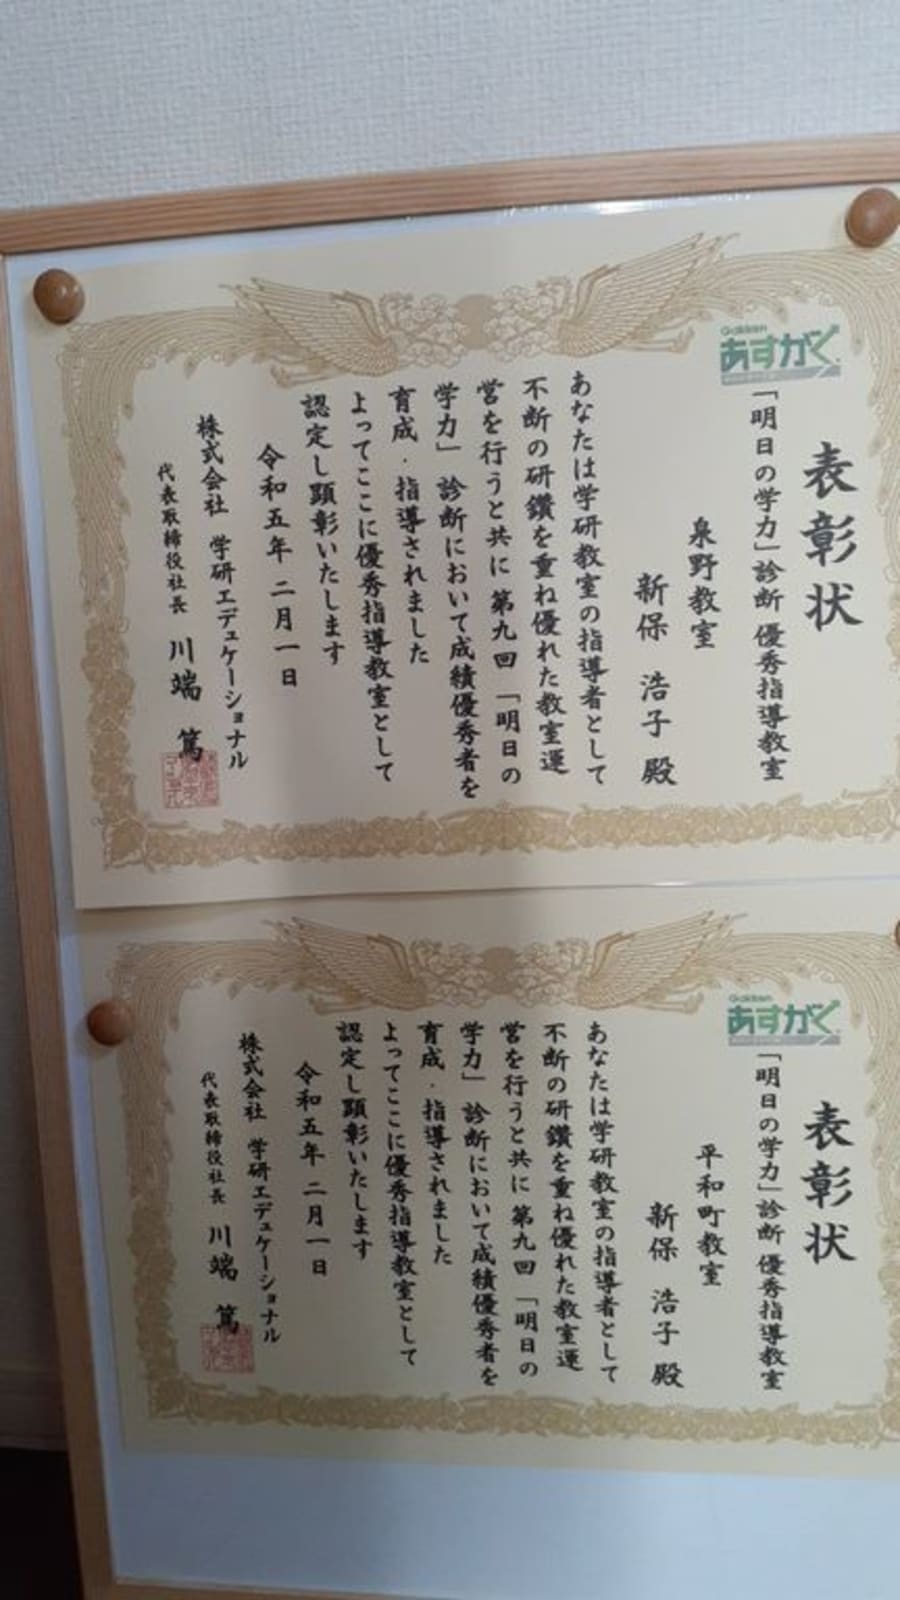 Gakken
あすがく
表彰状
「明日の学力」診断 優秀指導教室
泉野教室
新保 浩子 殿
あなたは学研教室の指導者として
不断の研鑽を重ね優れた教室運
営を行うと共に 第九回 「明日の
学力」 診断において成績優秀者を
育成・指導されました
よってここに優秀指導教室として
認定し顕彰いたします
令和五年 二月一日
株式会社 学研エデュケーショナル
代表取締役社長 川端 篤
Gakken
あすがく
表彰状
「明日の学力」診断 優秀指導教室
平和町教室
新保 浩子 殿
あなたは学研教室の指導者として
不断の研鑽を重ね優れた教室運
営を行うと共に 第九回 「明日の
学力」 診断において成績優秀者を
育成・指導されました
よってここに優秀指導教室として
認定し顕彰いたします
令和五年 二月一日
株式会社 学研エデュケーショナル
代表取締役社長 川端 篤